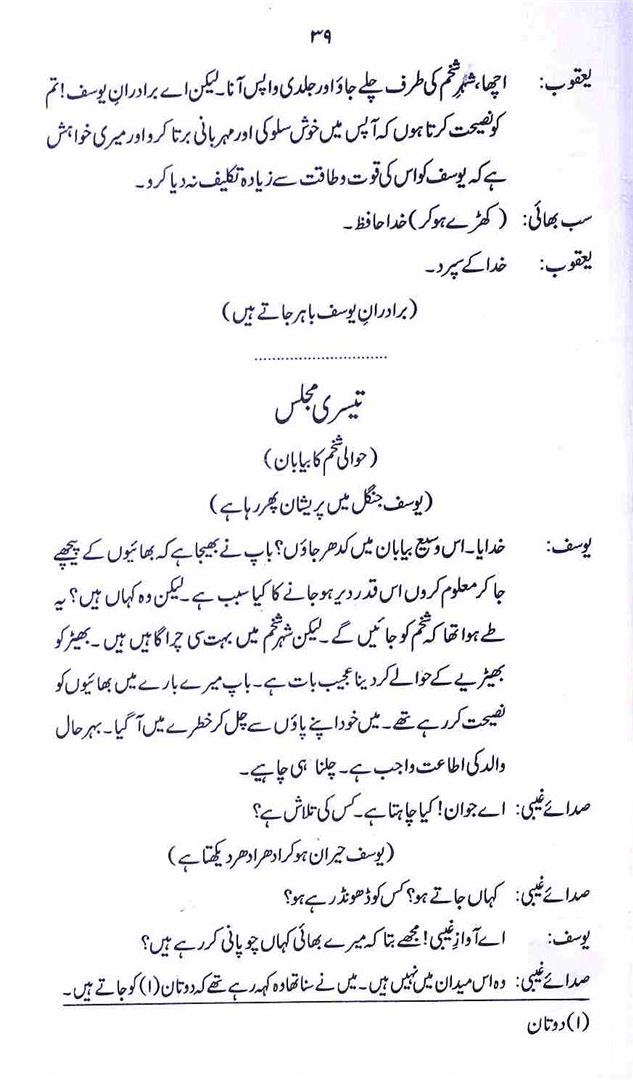 ۳۹
یعقوب: اچھا، شہرِ شخم کی طرف چلے جاؤ اور جلدی واپس آنا۔ لیکن اے برادرانِ یوسف! تم
کو نصیحت کرتا ہوں کہ آپس میں خوش سلوکی اور مہربانی برتا کرو اور میری خواہش
ہے کہ یوسف کو اس کی قوت و طاقت سے زیادہ تکلیف نہ دیا کرو۔
سب بھائی: (کھڑے ہو کر) خدا حافظ۔
یعقوب: خدا کے سپرد۔
(برادرانِ یوسف باہر جاتے ہیں)
................................
تیسری مجلس
(حوالی شخم کا بیابان)
(یوسف جنگل میں پریشان پھر رہا ہے)
یوسف: خدایا۔ اس وسیع بیابان میں کدھر جاؤں؟ باپ نے بھیجا ہے کہ بھائیوں کے پیچھے
جا کر معلوم کروں اس قدر دیر ہو جانے کا کیا سبب ہے۔ لیکن وہ کہاں ہیں؟ یہ
طے ہوا تھا کہ شخم کو جائیں گے۔ لیکن شہر شخم میں بہت سی چراگاہیں ہیں۔ بھیڑ کو
بھیڑیے کے حوالے کر دینا عجیب بات ہے۔ باپ میرے بارے میں بھائیوں کو
نصیحت کر رہے تھے۔ میں خود اپنے پاؤں سے چل کر خطرے میں آ گیا۔ بہر حال
والد کی اطاعت واجب ہے۔ چلنا ہی چاہیے۔
صدائے غیبی: اے جوان! کیا چاہتا ہے۔ کس کی تلاش ہے؟
(یوسف حیران ہو کر ادھر ادھر دیکھتا ہے)
صدائے غیبی: کہاں جاتے ہو؟ کس کو ڈھونڈ رہے ہو؟
یوسف: اے آوازِ غیبی! مجھے بتا کہ میرے بھائی کہاں چوپانی کر رہے ہیں؟
صدائے غیبی: وہ اس میدان میں نہیں ہیں۔ میں نے سنا تھا وہ کہہ رہے تھے کہ دوتان (۱) کو جاتے ہیں۔
(۱) دوتان